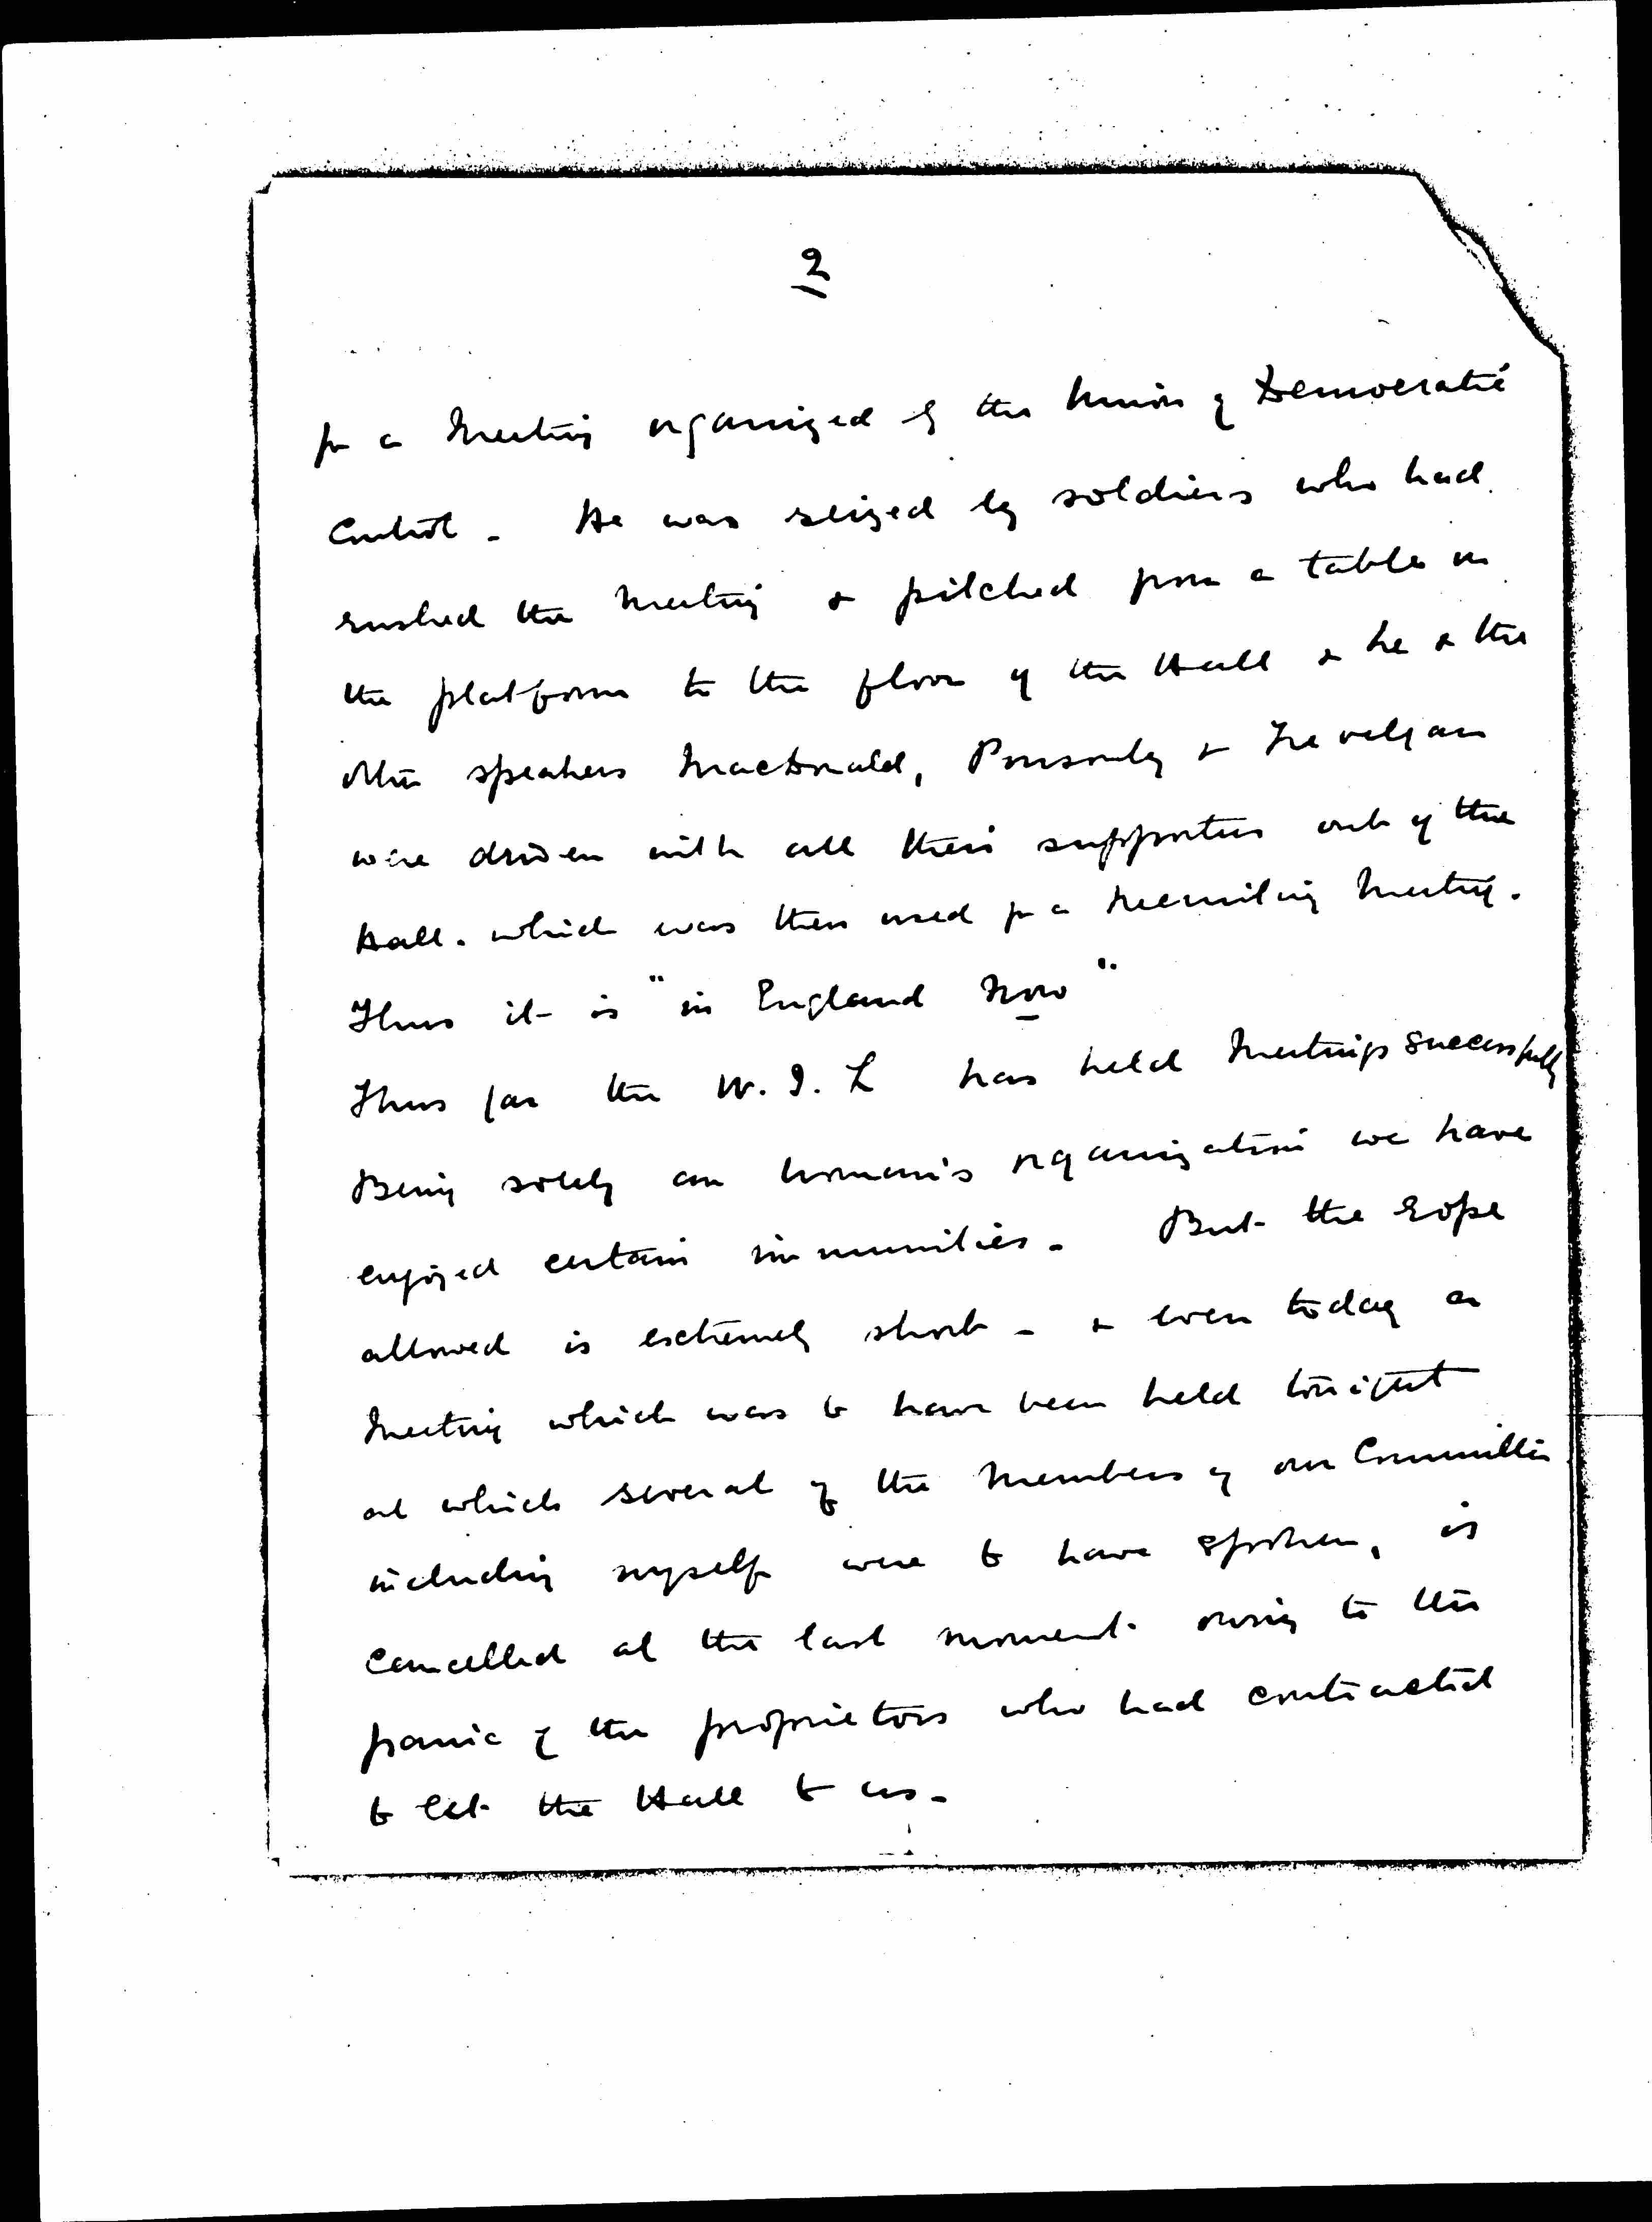 2
for a Meeting organized by the Union of Democratic
Control - He was seized by soldiers who had
rushed the Meeting & pitched from a table on
the platform to the floor of the Hall & he & the
other speakers MacDonald, Ponsonby & Trevelyan
were driven with all their supporters out of the
Hall. which was then used for a Recruiting Meeting.
Thus it is "in England Now"
Thus far the W. I. L has held Meetings successfully
Being solely an Woman's organization we have
enjoyed certain immunities - But the rope
allowed is extremely short - & even today a
Meeting which was to have been held tonight
at which several of the Members of our Committee
including myself were to have spoken, is
cancelled at the last moment owing to the
panic of the proprietors who had contracted
to let the Hall to us -